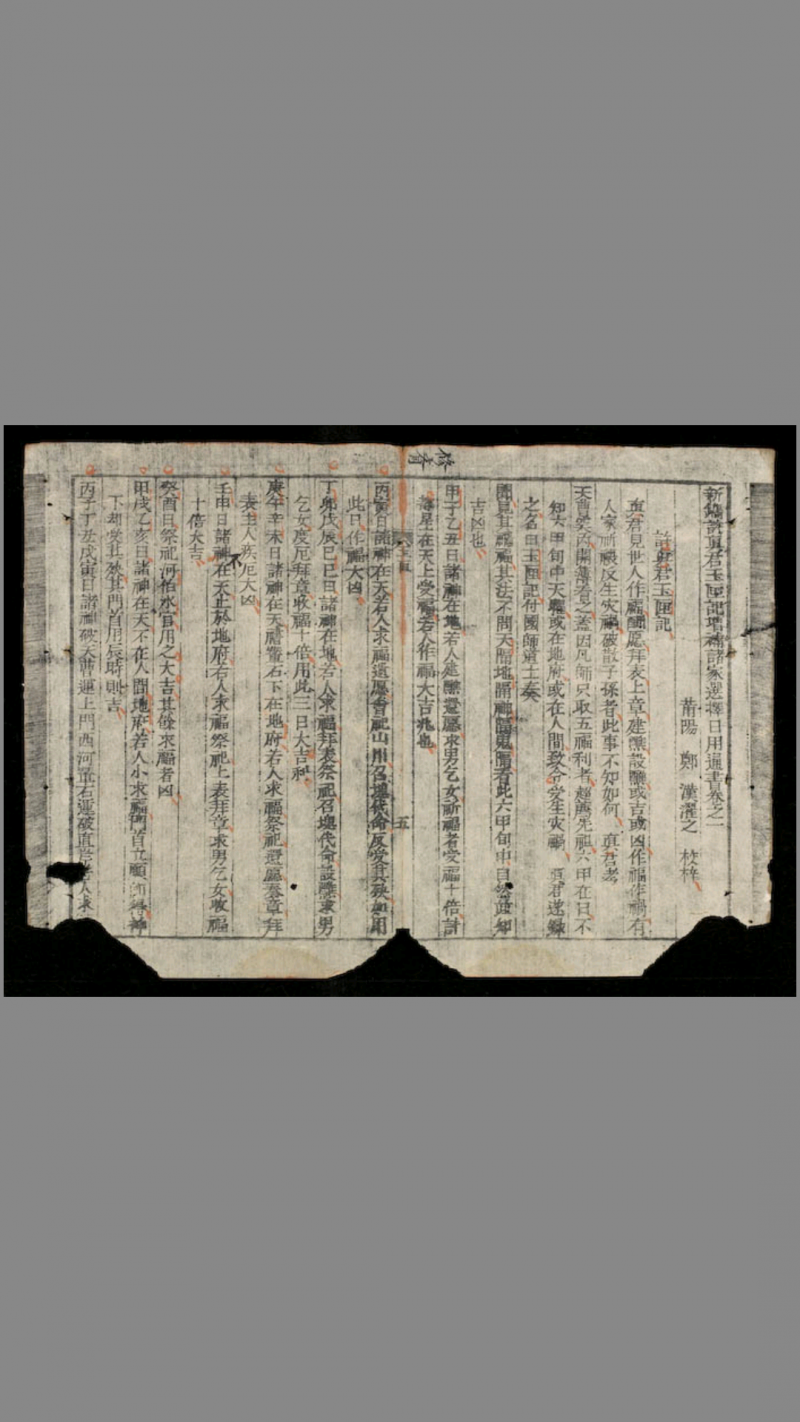 新鐫許真君玉匣記增補諸家選擇日用通書卷之一
莆陽 鄭 漢濯之 校梓
許真君玉匣記
真君見世人作福酬愿拜表上章建醮設醮或吉或凶作福作禍有
人家祈禳反生灾禍破散子孫者此事不知如何真君考
天曹案內開簿看之蓋因凡師只取五福利者超薦先祖六甲在日不
知六甲旬中天曹或在地府或在人間致令受生灾禍真君遂錄
之名曰玉匣記付國師道士奏
聞見其禍福其法不問天隔地隔神隔鬼隔看此六甲旬中自然政知
吉凶也
甲子乙丑日諸神在地若人建醮還愿求男乞女祈福者受福十倍計
善星在天上受福若人作福大吉兆也
丙寅日諸神在天若人求福還愿會祀山川召塊代命反受其殃如用
此日作福大凶
丁卯戊辰己巳日諸神在地若人求福拜表祭祀召塊代命設醮求男
乞女度厄拜章收福十倍用此三日大吉利
庚午辛未日諸神在天曹運石下在地府若人求福祭祀還愿奏章拜
表主人疾厄大凶
壬申日諸神不在天止於地府若人求福祭祀上表拜章求男乞女收福
十倍大吉
癸酉日祭祀河伯水官用之大吉其餘求福者凶
甲戌乙亥日諸神在天不在人間地府若人小求福門首立願
下却受其殃其門首用辰時則吉
丙子丁丑戊寅日諸神破天曹運上門西河
五